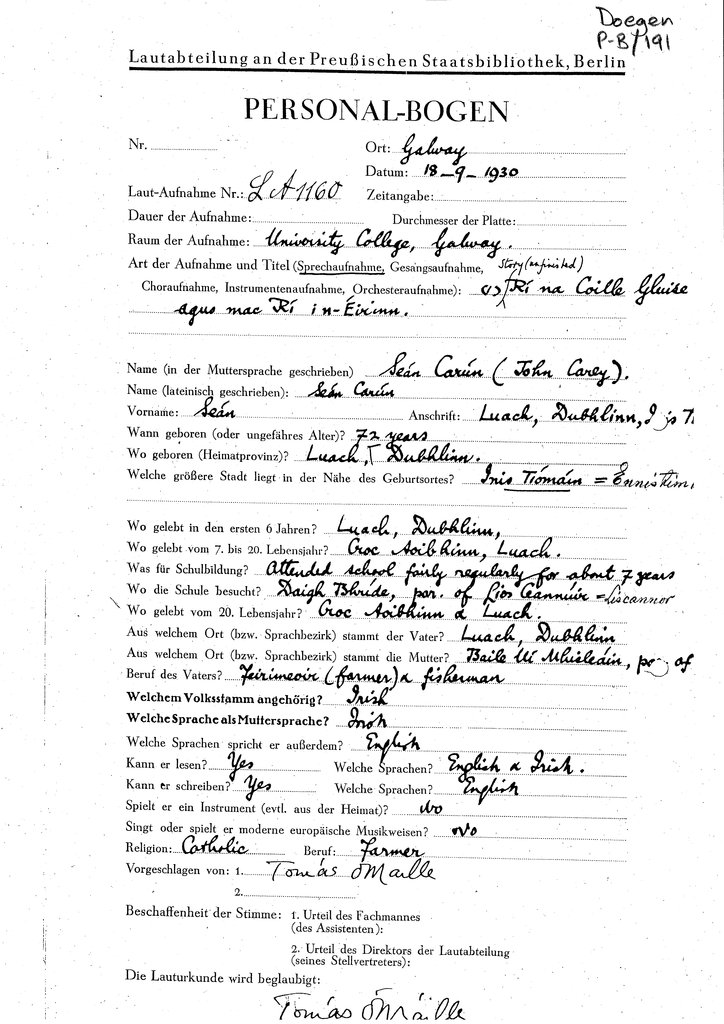 Doegen
P-B/191
Lautabteilung an der Preußischen Staatsbibliothek, Berlin
PERSONAL-BOGEN
Nr.
Ort: Galway
Datum: 18-9-1930
Laut-Aufnahme Nr.: LA1160 Zeitangabe:
Dauer der Aufnahme: Durchmesser der Platte:
Raum der Aufnahme: University College, Galway.
Art der Aufnahme und Titel (Sprechaufnahme, Gesangsaufnahme, story (unfinished)
Choraufnahme, Instrumentenaufnahme, Orchesteraufnahme): (1) Rí na Coille Gluise
agus mac Rí i n-Éirinn.
Name (in der Muttersprache geschrieben) Seán Carún (John Carey).
Name (lateinisch geschrieben): Seán Carún
Vorname: Seán Anschrift: Luach, Dubhlinn,
Wann geboren (oder ungefähres Alter)? 72 years
Wo geboren (Heimatprovinz)? Luach, Dubhlinn.
Welche größere Stadt liegt in der Nähe des Geburtsortes? Inis Tiomáin = Ennistim,
Wo gelebt in den ersten 6 Jahren? Luach, Dubhlinn,
Wo gelebt vom 7. bis 20. Lebensjahr? Croc Aoibhinn, Luach.
Was für Schulbildung? Attended school fairly regularly for about 7 years
Wo die Schule besucht? Daigh Bhríde, par. of Lios Ceannúir = Liscannor
Wo gelebt vom 20. Lebensjahr? Croc Aoibhinn & Luach.
Aus welchem Ort (bzw. Sprachbezirk) stammt der Vater? Luach, Dubhlinn
Aus welchem Ort (bzw. Sprachbezirk) stammt die Mutter? Baile Uí Mhisleáin, par of
Beruf des Vaters? Feirmeoir (farmer) & fisherman
Welchem Volksstamm angehörig? Irish
Welche Sprache als Muttersprache? Irish
Welche Sprachen spricht er außerdem? English
Kann er lesen? Yes Welche Sprachen? English & Irish.
Kann er schreiben? Yes Welche Sprachen? English
Spielt er ein Instrument (evtl. aus der Heimat)? No
Singt oder spielt er moderne europäische Musikweisen? No
Religion: Catholic Beruf: Farmer
Vorgeschlagen von: 1. Tomás Ó Máille
2.
Beschaffenheit der Stimme: 1. Urteil des Fachmannes
(des Assistenten):
2. Urteil des Direktors der Lautabteilung
(seines Stellvertreters):
Die Lauturkunde wird beglaubigt:
Tomás Ó Máille